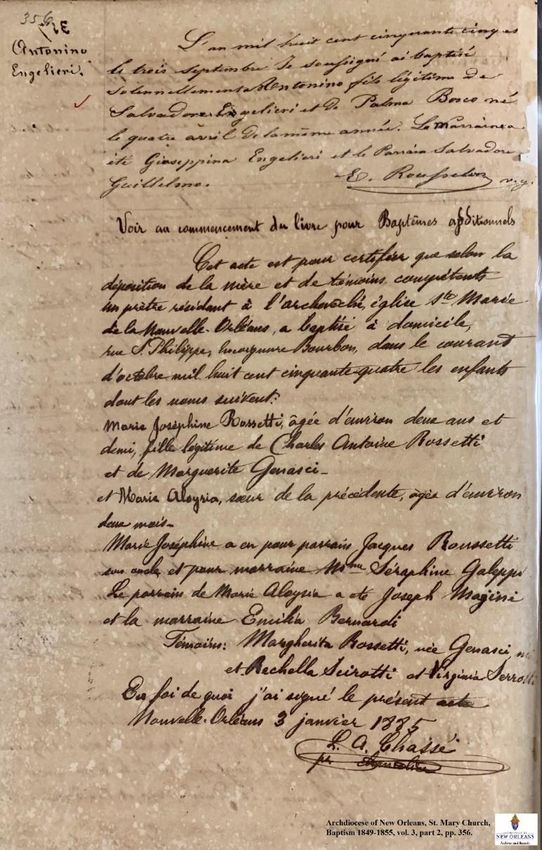 356
Antonino
Engelieri.
L'an mil huit cent cinquante cinq et
le trois Septembre Je soussigné ai baptisé
Solennellement Antonino fils légitime de
Salvadore Engelieri et de Palma Bosco né
le quatre avril de la même année. La Marraine a
été Giuseppina Engelieri et le Parrain Salvadore
Guillelmo.
E. Rousselon v.g.
Voir au commencement du livre pour Baptêmes additionnels
Cet acte est pour certifier que selon la
déposition de la mère et de témoins compétents
un prêtre résidant à l'archevêché église Ste Marie
de la Nouvelle-Orléans, a baptisé à domicile,
rue St Philippe, encoignure Bourbon, dans le courant
d'octobre mil huit cent cinquante-quatre les enfants
dont les noms suivent:
Marie Joséphine Rossetti, âgée d'environ deux ans et
demi, fille légitime de Charles Antoine Rossetti
et de Marguerite Genasci-
et Marie Aloysia, sœur de la précédente, âgée d'environ
deux mois-
Marie Joséphine a eu pour parrain Jacques Roussetti
son oncle et pour marraine Mme Séraphine Galeppi
Le parrain de Marie Aloysia a été Joseph Magini
et la marraine Emilia Bernardi
Témoins: Margherita Rossetti, née Genasci,
et Rachella Scirotti et Virginia Serrotti
En foi de quoi j'ai signé le présent acte
Nouvelle-Orléans 3 janvier 1885
L. A. Chassé
pr Chancelier
Archdiocese of New Orleans, St. Mary Church,
Baptism 1849-1855, vol. 3, part 2, pp. 356.
NEW ORLEANS